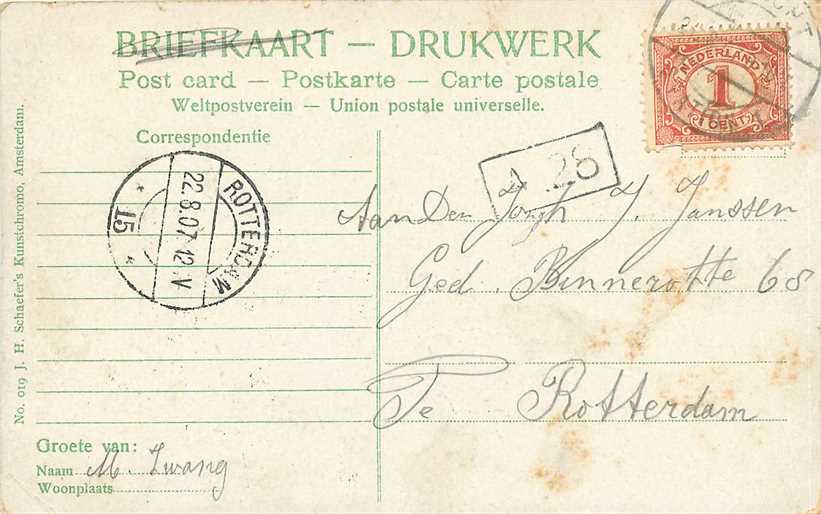 BRIEFKAART — DRUKWERK
Post card — Postkarte — Carte postale
Weltpostverein — Union postale universelle.
Correspondentie
NEDERLAND
1
CENT
A 28
ROTTERDAM
22.8.07.12.V
15
Aan Den Jongh J. Janssen
Ged. Binnerotte 68
Te Rotterdam
Groete van:
Naam M. Zwang
Woonplaats
No. 019 J. H. Schaefer's Kunstchromo, Amsterdam.